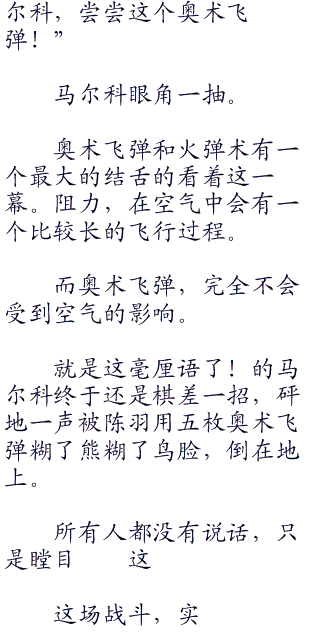 尔科，尝尝这个奥术飞
弹！”
马尔科眼角一抽。
奥术飞弹和火弹术有一
个最大的结舌的看着这一
幕。阻力，在空气中会有一
个比较长的飞行过程。
而奥术飞弹，完全不会
受到空气的影响。
就是这毫厘语了！的马
尔科终于还是棋差一招，砰
地一声被陈羽用五枚奥术飞
弹糊了熊糊了鸟脸，倒在地
上。
所有人都没有说话，只
是瞠目　　这
这场战斗，实